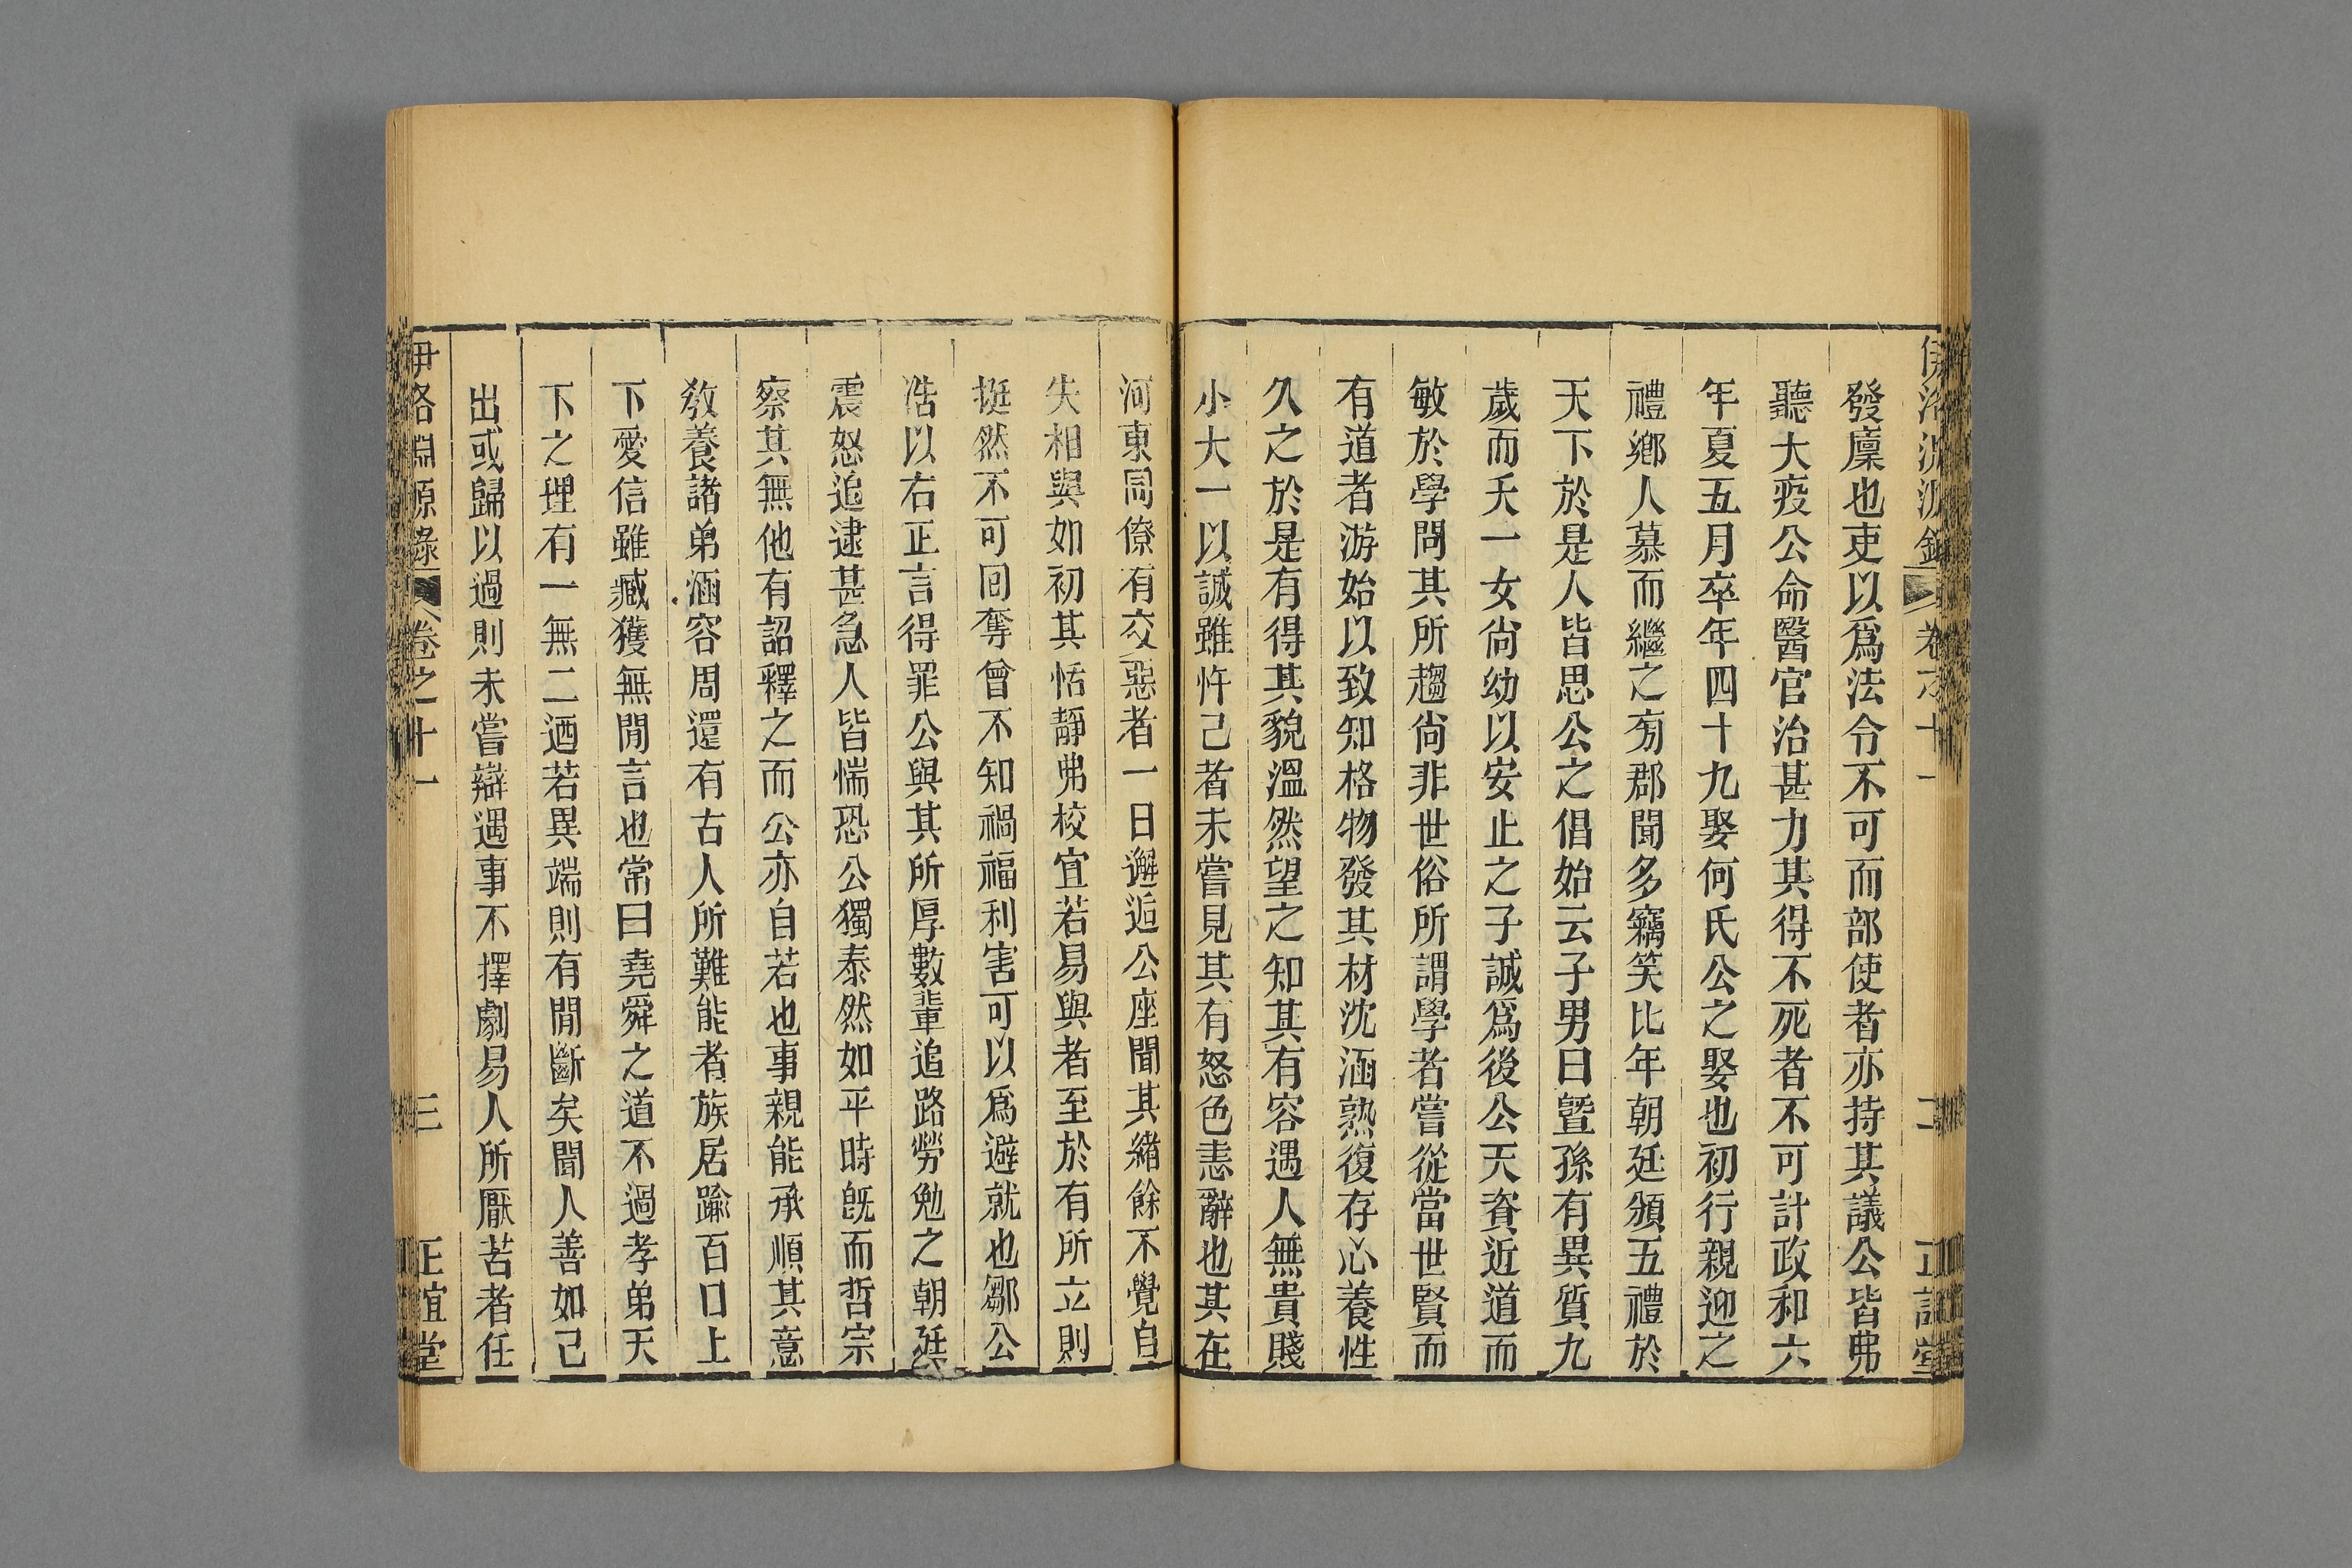 伊洛淵源錄 卷之十一 二 正誼堂
發廩也吏以爲法令不可而部使者亦持其議公皆弗
聽大疫公命醫官治甚力其得不死者不可計政和六
年夏五月卒年四十九娶何氏公之娶也初行親迎之
禮鄉人慕而繼之旁郡聞多竊笑比年朝廷頒五禮於
天下於是人皆思公之倡始云子男曰曁孫有異質九
歲而夭一女尙幼以安止之子誠爲後公天資近道而
敏於學問其所趨尙非世俗所謂學者嘗從當世賢而
有道者游始以致知格物發其材沈涵熟復存心養性
久之於是有得其貌溫然望之知其有容遇人無貴賤
小大一以誠雖忤己者未嘗見其有怒色恚辭也其在
河東同僚有交惡者一日邂逅公座聞其緖餘不覺自
失相與如初其恬靜弗校宜若易與者至於有所立則
挺然不可回奪曾不知禍福利害可以爲避就也鄒公
浩以右正言得罪公與其所厚數輩追路勞勉之朝廷
震怒追逮甚急人皆惴恐公獨泰然如平時旣而哲宗
察其無他有詔釋之而公亦自若也事親能承順其意
敎養諸弟涵容周還有古人所難能者族居踰百口上
下愛信雖臧獲無閒言也常曰堯舜之道不過孝弟天
下之理有一無二迺若異端則有閒斷矣聞人善如己
出或歸以過則未嘗辯遇事不擇劇易人所厭苦者任
伊洛淵源錄 卷之十一 三 正誼堂